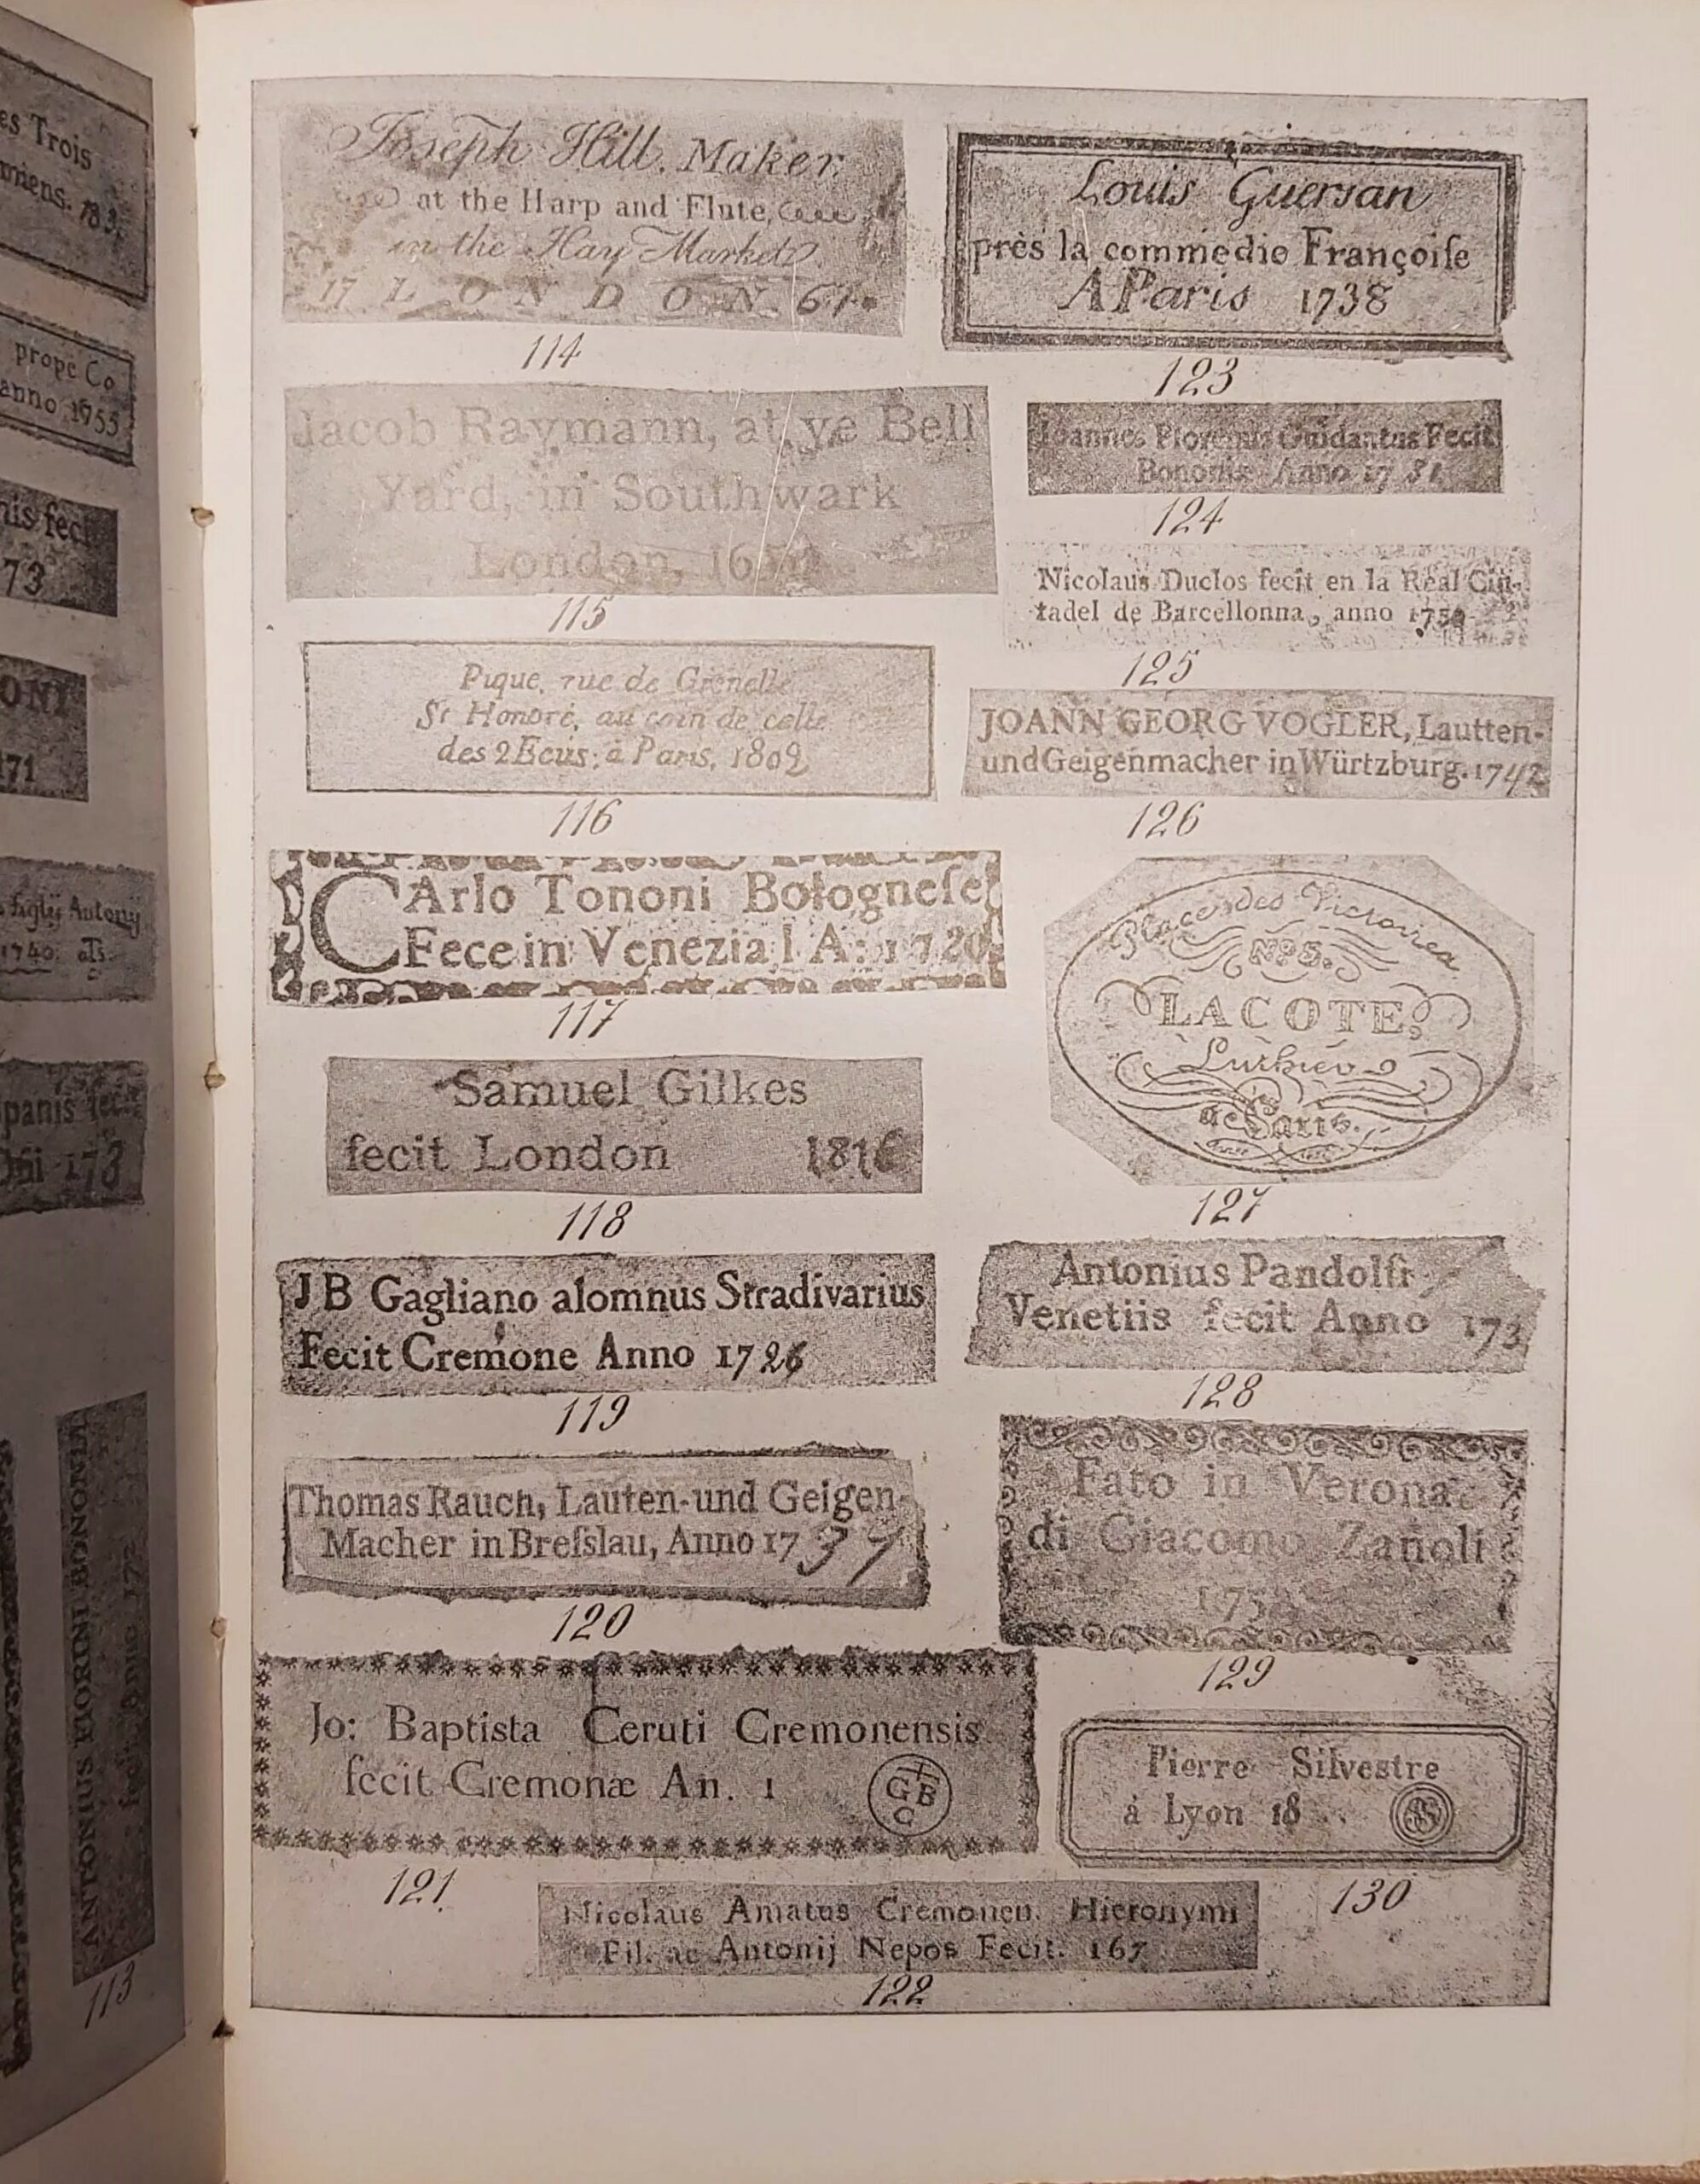 es Trois
miens. 183
prope Co
anno 1755
nis fecit
73
ONI
171
figlij Antonij
1740.
panis fecit
173
ANTONIUS FIORINI BONONIÆ
fecit Anno 172
113
Joseph Hill. Maker
at the Harp and Flute,
in the Hay Market
17 LONDON 61
114
Jacob Raymann, at ye Bell
Yard, in Southwark
London, 16
115
Pique, rue de Grenelle
St Honoré, au coin de celle
des 2 Ecus; à Paris, 1809
116
CArlo Tononi Bologneſe
Fece in Venezia l A: 1720
117
Samuel Gilkes
fecit London 1816
118
J B Gagliano alomnus Stradivarius
Fecit Cremone Anno 1726
119
Thomas Rauch, Lauten-und Geigen-
Macher in Breſslau, Anno 1737
120
Jo: Baptista Ceruti Cremonensis
fecit Cremonæ An. 1
GBC
121
Nicolaus Amatus Cremonen. Hieronymi
Fil. ac Antonij Nepos Fecit. 167
122
Louis Guersan
près la commedie Françoiſe
A Paris 1738
123
Joannes Florenus Guidantus Fecit
Bononiæ Anno 1731
124
Nicolaus Duclos fecit en la Real Ciu-
tadel de Barcellonna, anno 175
125
JOANN GEORG VOGLER, Lautten-
und Geigenmacher in Würtzburg. 1742
126
Place des Victoires
No 5.
LACOTE
Luthier
à Paris.
127
Antonius Pandolfi
Venetiis fecit Anno 173
128
Fato in Verona
di Giacomo Zanoli
175
129
Pierre Silvestre
à Lyon 18 . .
130